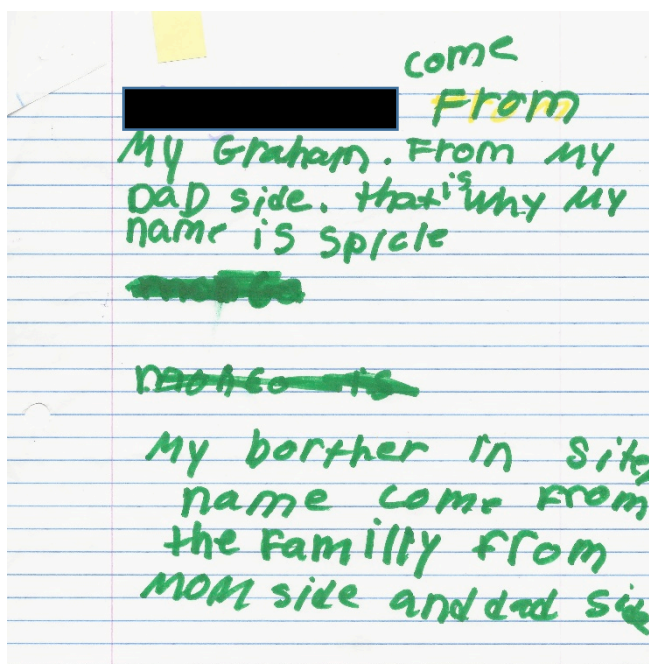 come
From
My Graham. From My
DaD side. that is why My
name is spicle
My borther in
name come From
the Familly from
MOM side and dad side